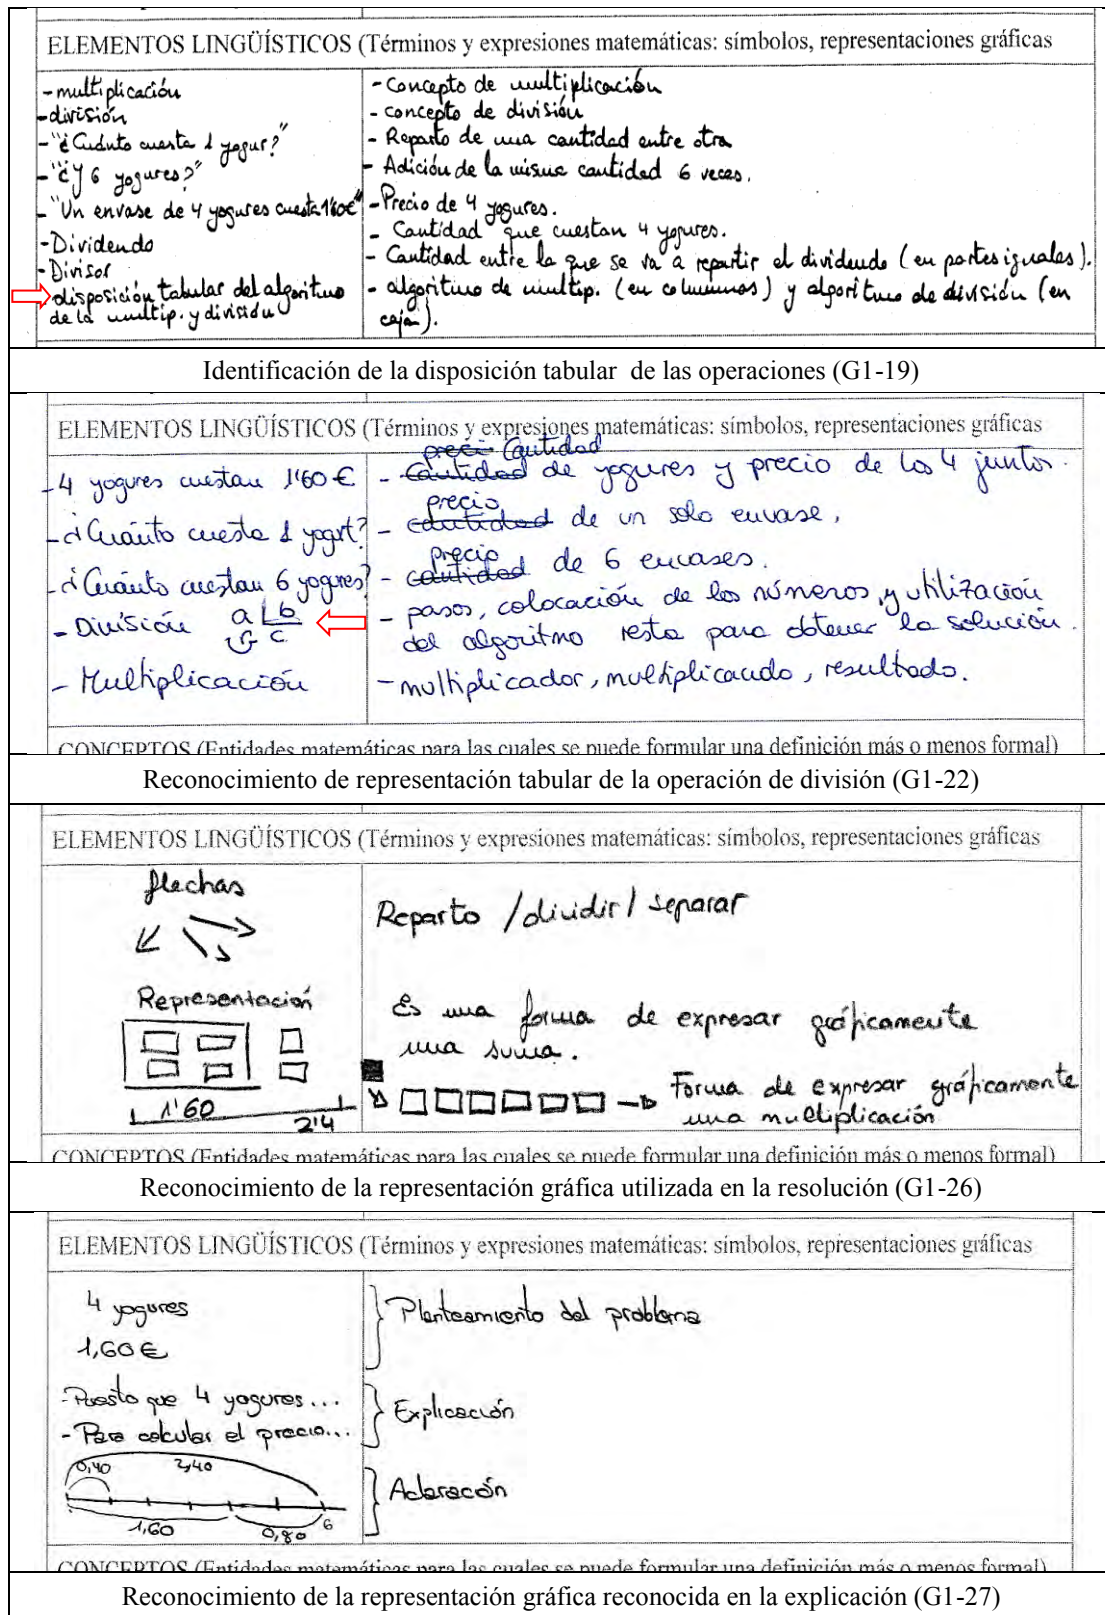 ELEMENTOS LINGÜÍSTICOS (Términos y expresiones matemáticas: símbolos, representaciones gráficas
- multiplicación
- división
- "¿Cuánto cuesta 1 yogur?"
- "¿Y 6 yogures?"
- "Un envase de 4 yogures cuesta 1'60€"
- Dividendo
- Divisor
- disposición tabular del algoritmo
de la multip. y división
- Concepto de multiplicación
- concepto de división
- Reparto de una cantidad entre otra
- Adición de la misma cantidad 6 veces.
- Precio de 4 yogures.
- Cantidad que cuestan 4 yogures.
- Cantidad entre la que se va a repartir el dividendo (en partes iguales).
- algoritmo de multip. (en columnas) y algoritmo de división (en
caja).
Identificación de la disposición tabular de las operaciones (G1-19)
ELEMENTOS LINGÜÍSTICOS (Términos y expresiones matemáticas: símbolos, representaciones gráficas
- 4 yogures cuestan 1'60 €
- ¿Cuánto cuesta 1 yogurt?
- ¿Cuánto cuestan 6 yogures?
- División a b
c
- Multiplicación
preci Cantidad
- Cantidad de yogures y precio de los 4 juntos.
precio
- cantidad de un solo envase,
precio
- cantidad de 6 envases.
- pasos, colocación de los números, y utilización
del algoritmo resta para obtener la solución.
- multiplicador, multiplicando, resultado.
CONCEPTOS (Entidades matemáticas para las cuales se puede formular una definición más o menos formal)
Reconocimiento de representación tabular de la operación de división (G1-22)
ELEMENTOS LINGÜÍSTICOS (Términos y expresiones matemáticas: símbolos, representaciones gráficas
flechas
Reparto / dividir / separar
Representación
1'60
2'4
Es una forma de expresar gráficamente
una suma.
Forma de expresar gráficamente
una multiplicación
CONCEPTOS (Entidades matemáticas para las cuales se puede formular una definición más o menos formal)
Reconocimiento de la representación gráfica utilizada en la resolución (G1-26)
ELEMENTOS LINGÜÍSTICOS (Términos y expresiones matemáticas: símbolos, representaciones gráficas
4 yogures
1,60 €
Planteamiento del problema
- Puesto que 4 yogures...
- Para calcular el precio...
Explicación
0,40 2,40
1,60 0,80 6
Aclaración
CONCEPTOS (Entidades matemáticas para las cuales se puede formular una definición más o menos formal)
Reconocimiento de la representación gráfica reconocida en la explicación (G1-27)